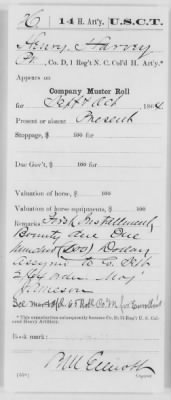 H | 14 H. Art'y. | U.S.C.T.
Henry Harvey
Pt., Co. D, 1 Reg't N. C. Col'd H. Art'y.*
Appears on
Company Muster Roll
for Sept & Oct, 1864.
Present or absent Present
Stoppage, $ 100 for
Due Gov't, $ 100 for
Valuation of horse, $ 100
Valuation of horse equipments, $ 100
Remarks: First Installment
Bounty due One
Hundred (100) Dollars
Assign to Co.
order Maj
Jameson
See Roll Co. M for Enrollment
*This organization subsequently became Co. D, 14 Reg't U. S. Colored Heavy Artillery.
Book mark:
Copyist.